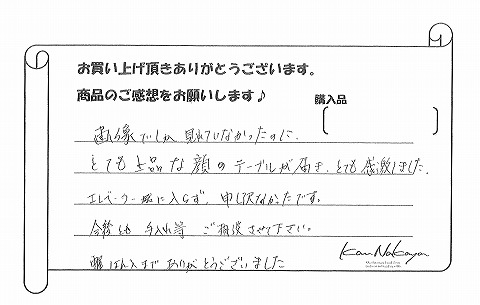 お買い上げ頂きありがとうございます。
商品のご感想をお願いします♪
購入品
画像でしか見れていなかったのに、
とても上品な顔のテーブルが届き、とても感激しました。
エレベーター 入らず、申し訳なかったです。
今後とも 手入れ等 ご相談させて下さい。
ありがとうございました
Kan Nakayama